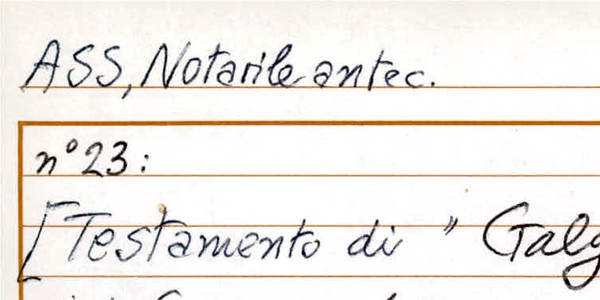 ASS, Notarile antec.
n° 23:
[Testamento di " Galg